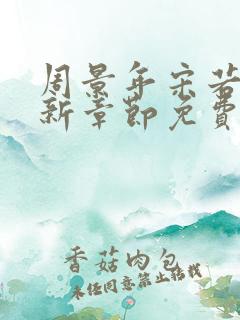 周景年宋若
新章节免费
香菇肉包
未经同意禁止转载